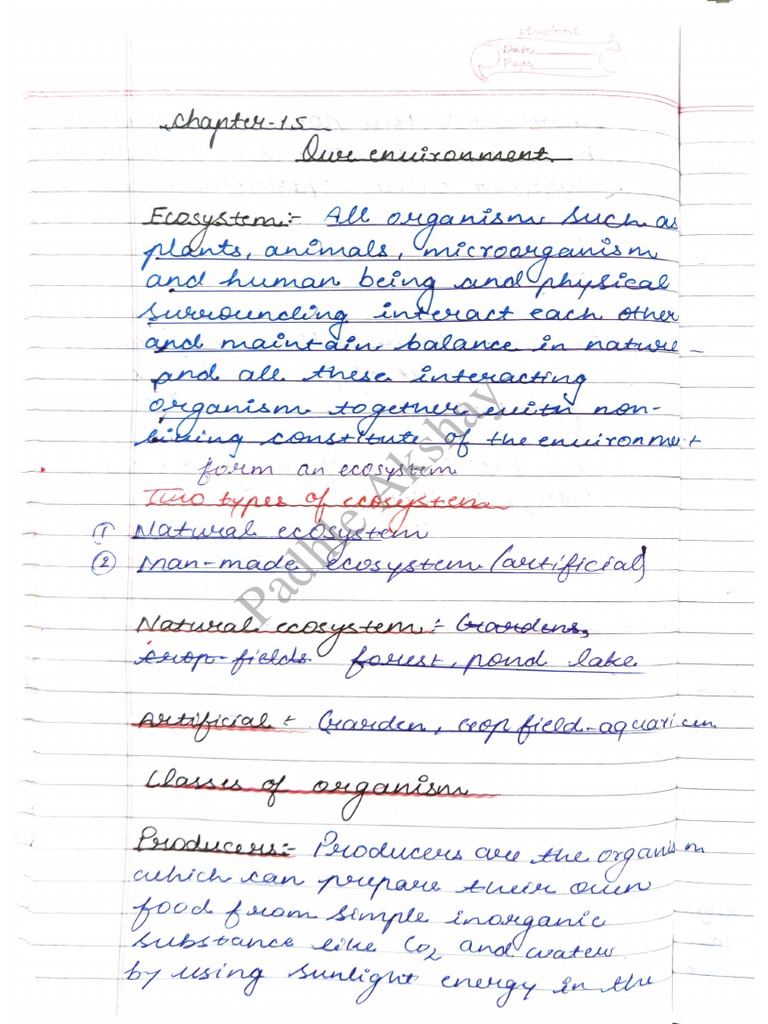 Student
Date
Page
Chapter-15
Our environment
Ecosystem:- All organism such as
plants, animals, microorganism
and human being and physical
surrounding interact each other
and maintain balance in nature
and all these interacting
organism together with non-
living constitute of the environment
form an ecosystem
Two types of ecosystem
① Natural ecosystem
② Man-made ecosystem (artificial)
Natural ecosystem:- Gardens,
crop-fields forest, pond lake
Artificial:- Garden, crop field-aquarium
Classes of organism
Producers:- Producers are the organism
which can prepare their own
food from simple inorganic
substance like CO2 and water
by using sunlight energy in the
Padhle Akshay